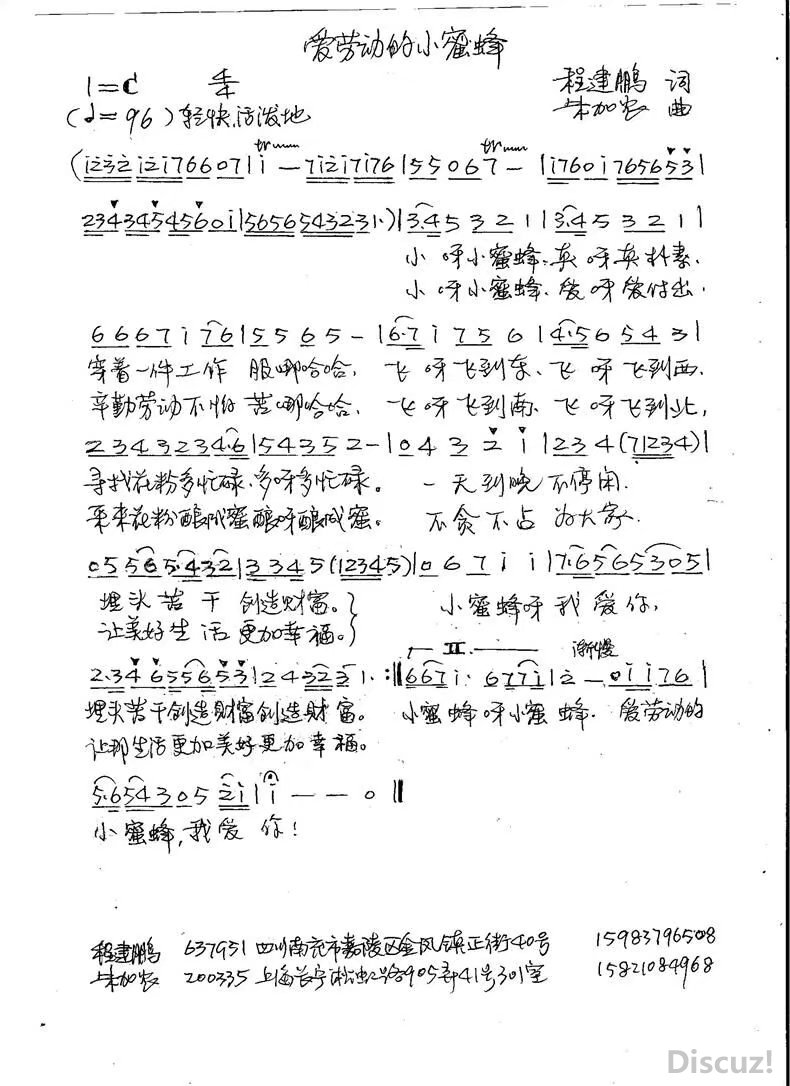 爱劳动的小蜜蜂
1=C 4/4 程建鹏 词
(♩=96)轻快活泼地 朱加农 曲
小呀小蜜蜂、真呀真朴素.
小呀小蜜蜂、爱呀爱付出.
6 6 6 7 i 7 6 | 5 5 6 5 - | 6·7 i 7 5 6 | 4·5 6 5 4 3 |
穿着一件工作服哪哈哈, 飞呀飞到东、飞呀飞到西.
辛勤劳动不怕苦哪哈哈. 飞呀飞到南、飞呀飞到北,
2 3 4 3 2 3 4·6 | 5 4 3 5 2 - | 0 4 3 2 i | 2 3 4 (7 1 2 3 4) |
寻找花粉多忙碌、多呀多忙碌。 一天到晚不停闲.
采来花粉酿成蜜酿呀酿成蜜。 不贪不占为大家.
0 5 5 6 5·4 3 2 | 3 3 4 5 (1 2 3 4 5) | 0 6 7 i i | 7·6 5 6 5 3 0 5 |
埋头苦干创造财富。} 小蜜蜂呀我爱你,
让美好生活更加幸福。}
II. 渐慢
埋头苦干创造财富创造财富。 小蜜蜂呀小蜜蜂. 爱劳动的
让那生活更加美好更加幸福。
5·6 5 4 3 0 5 2 i | i - - 0 ||
小蜜蜂,我爱你!
程建鹏 637951 四川南充市嘉陵区金凤镇正街40号 15983796508
朱加农 200335 上海长宁淞虹路905弄41号301室 15821084968
Discuz!